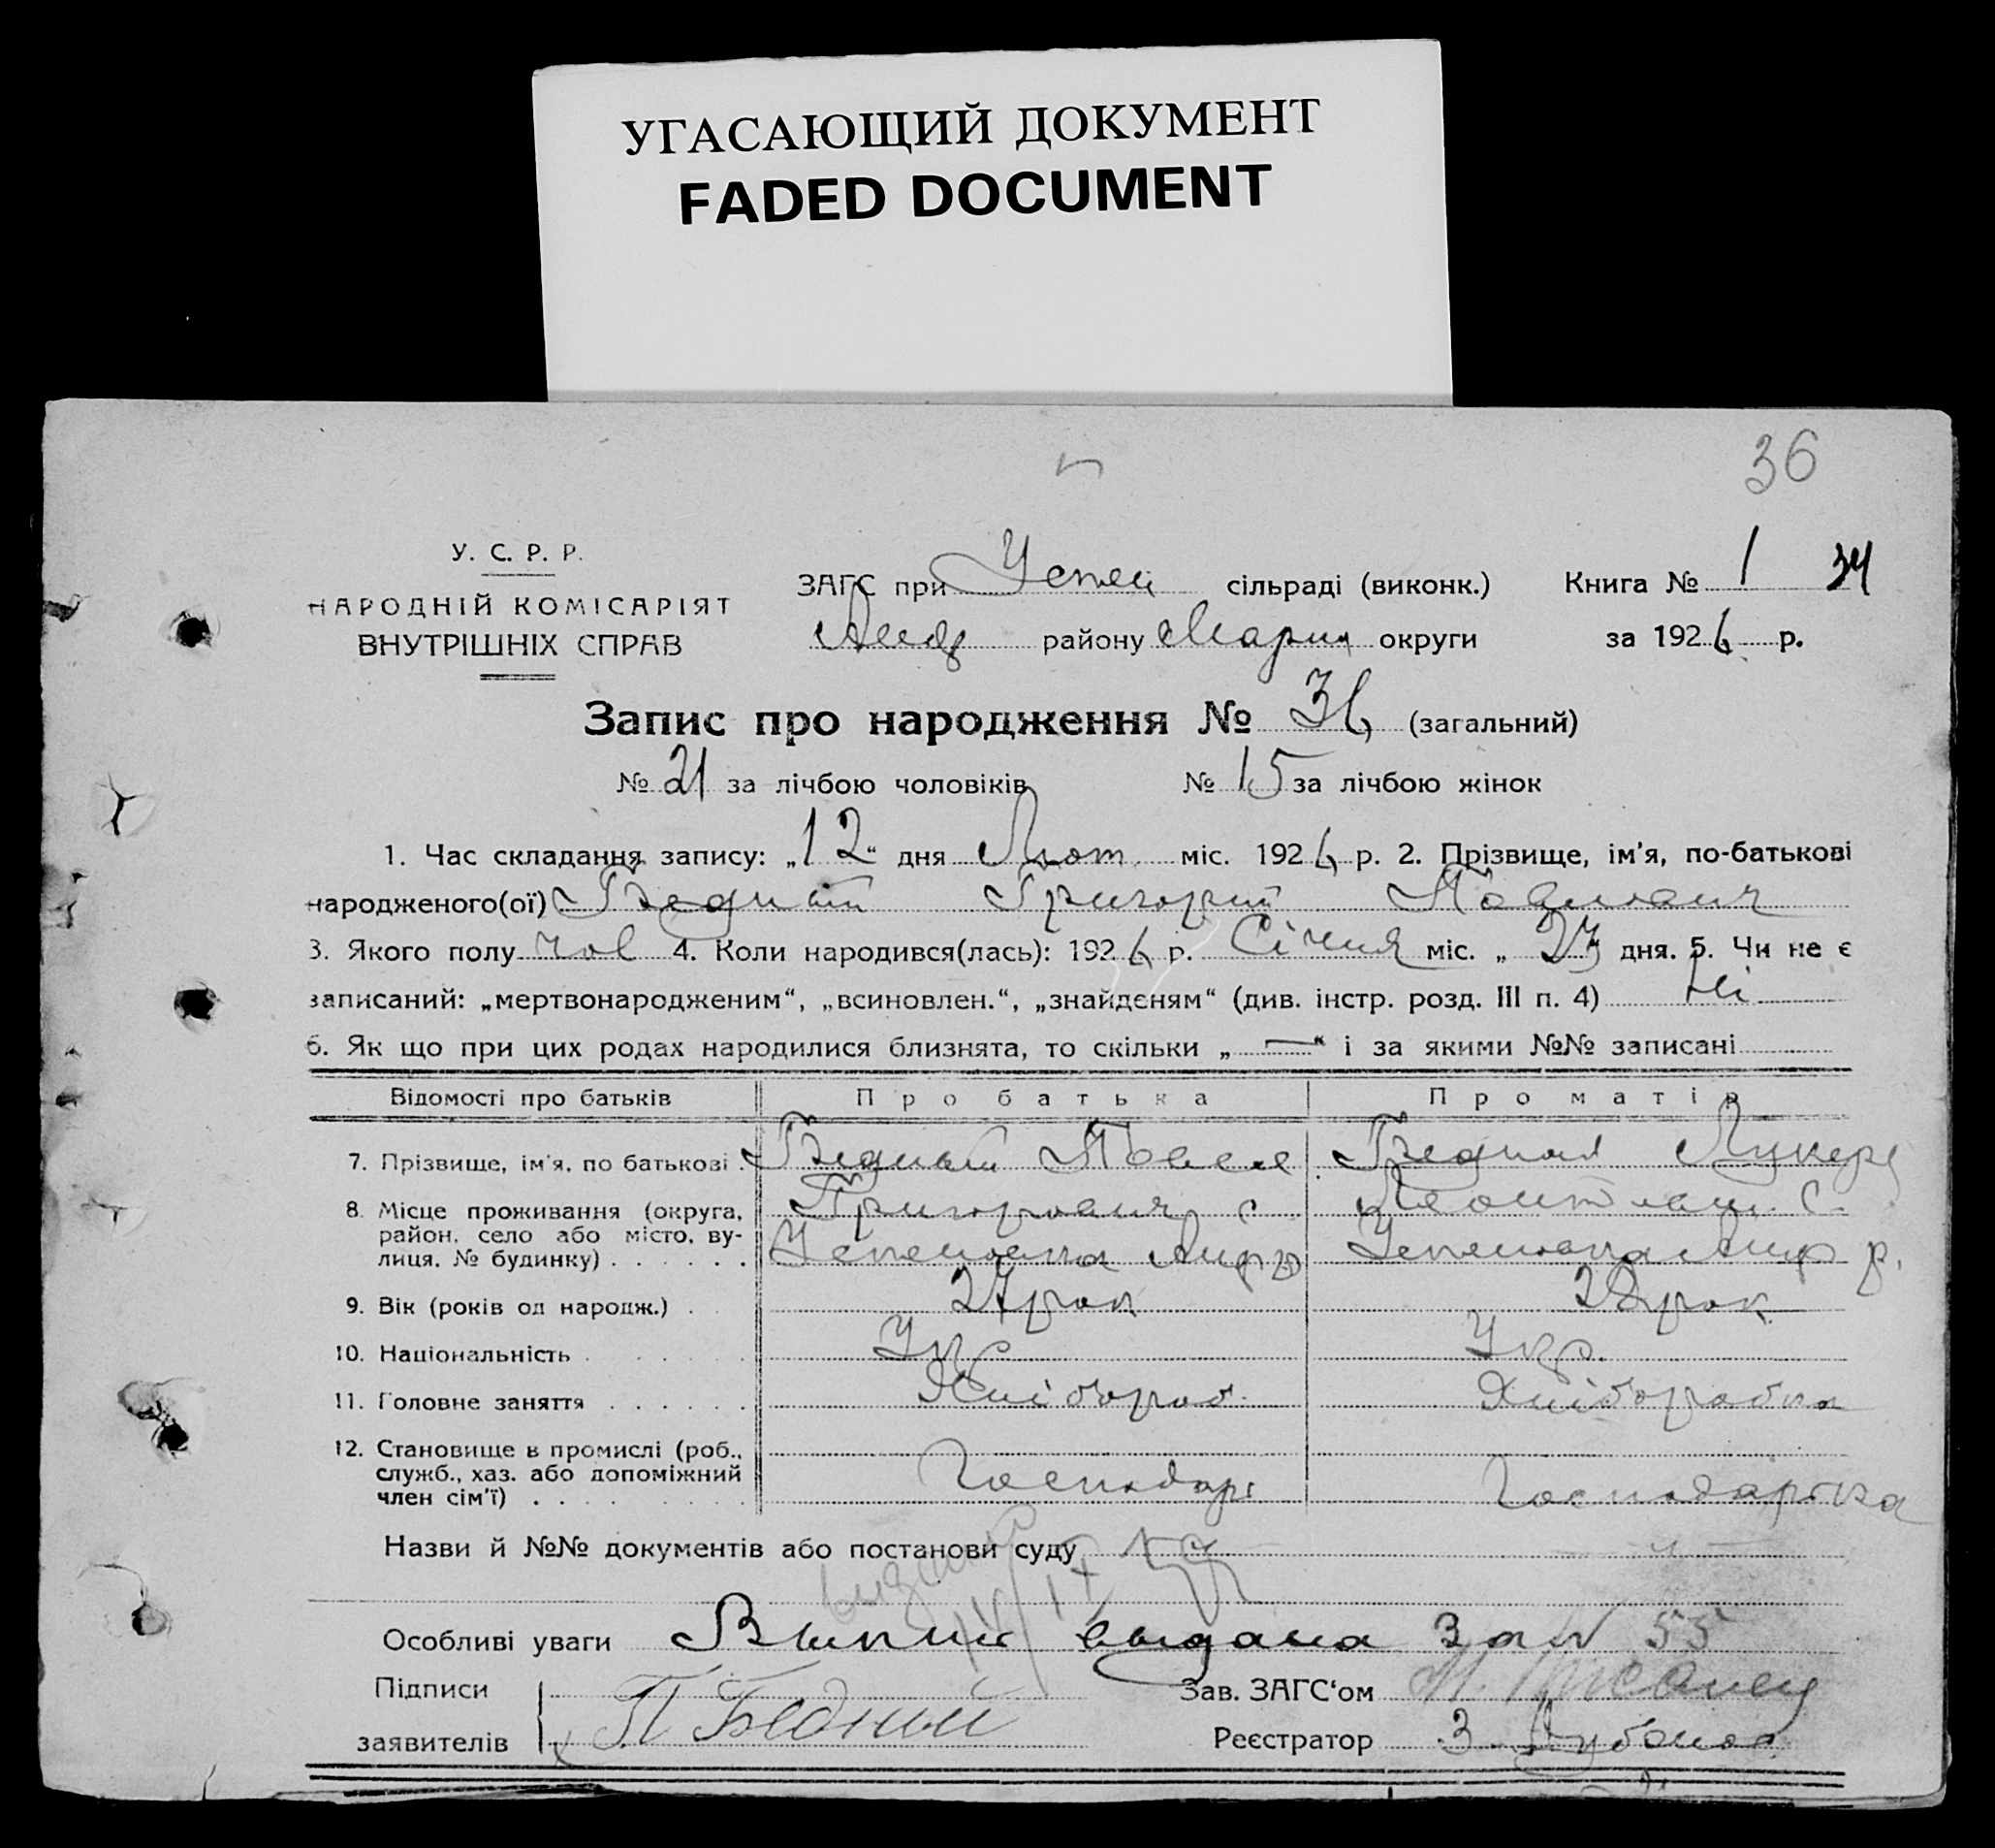 УГАСАЮЩИЙ ДОКУМЕНТ
FADED DOCUMENT
36
У. С. Р. Р.
НАРОДНІЙ КОМІСАРІЯТ
ВНУТРІШНІХ СПРАВ
ЗАГС при Успен сільраді (виконк.) Книга № 1 34
району Марип округи за 1926 р.
Запис про народження № 36 (загальний)
№ 21 за лічбою чоловіків № 15 за лічбою жінок
1. Час складання запису: „12“ дня Лют. міс. 1926 р. 2. Прізвище, ім'я, по-батькові
народженого(ої) Бедний Григорий Павлович
3. Якого полу чол 4. Коли народився(лась): 1926 р. Січня міс. „27 дня. 5. Чи не є
записаний: „мертвонародженим“, „всиновлен.“, „знайденям“ (див. інстр. розд. III п. 4) Ні
6. Як що при цих родах народилися близнята, то скільки „—“ і за якими №№ записані
Відомості про батьків Про батька Про матір
7. Прізвище, ім'я, по батькові . Бедный Павел Бедная Лукер
8. Місце проживання (округа, Григорович с. с.
район, село або місто, ву-
лиця, № будинку) . . . . . . Успеновка Успеновка р.
9. Вік (років од народж.) . . 27 рок 28 рок
10. Національність . . . . . Укр Укр.
11. Головне заняття . . . . . . Хлібороб. Хліборобка
12. Становище в промислі (роб.,
служб., хаз. або допоміжний Господарь Господарка
член сім'ї) . . . . . . . . .
Назви й №№ документів або постанови суду
Особливі уваги выдана за N 55
Підписи Зав. ЗАГС'ом
заявителів П Бедний Реєстратор З.